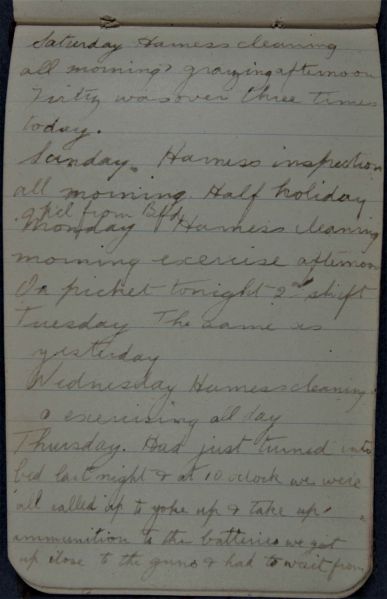 Saturday Harness cleaning
all morning & grazing afternoon
Fritz was over three times
today.
Sunday. Harness inspection
all morning Half holiday
Pcl from Bfd
Monday Harness cleaning
morning exercise afternoon
On picket tonight 2nd shift
Tuesday The same as
yesterday
Wednesday Harness cleaning
& exercising all day
Thursday. Had just turned into
bed last night & at 10 oclock we were
all called up to yoke up & take up
ammunition to the batteries we got
up close to the guns & had to wait from